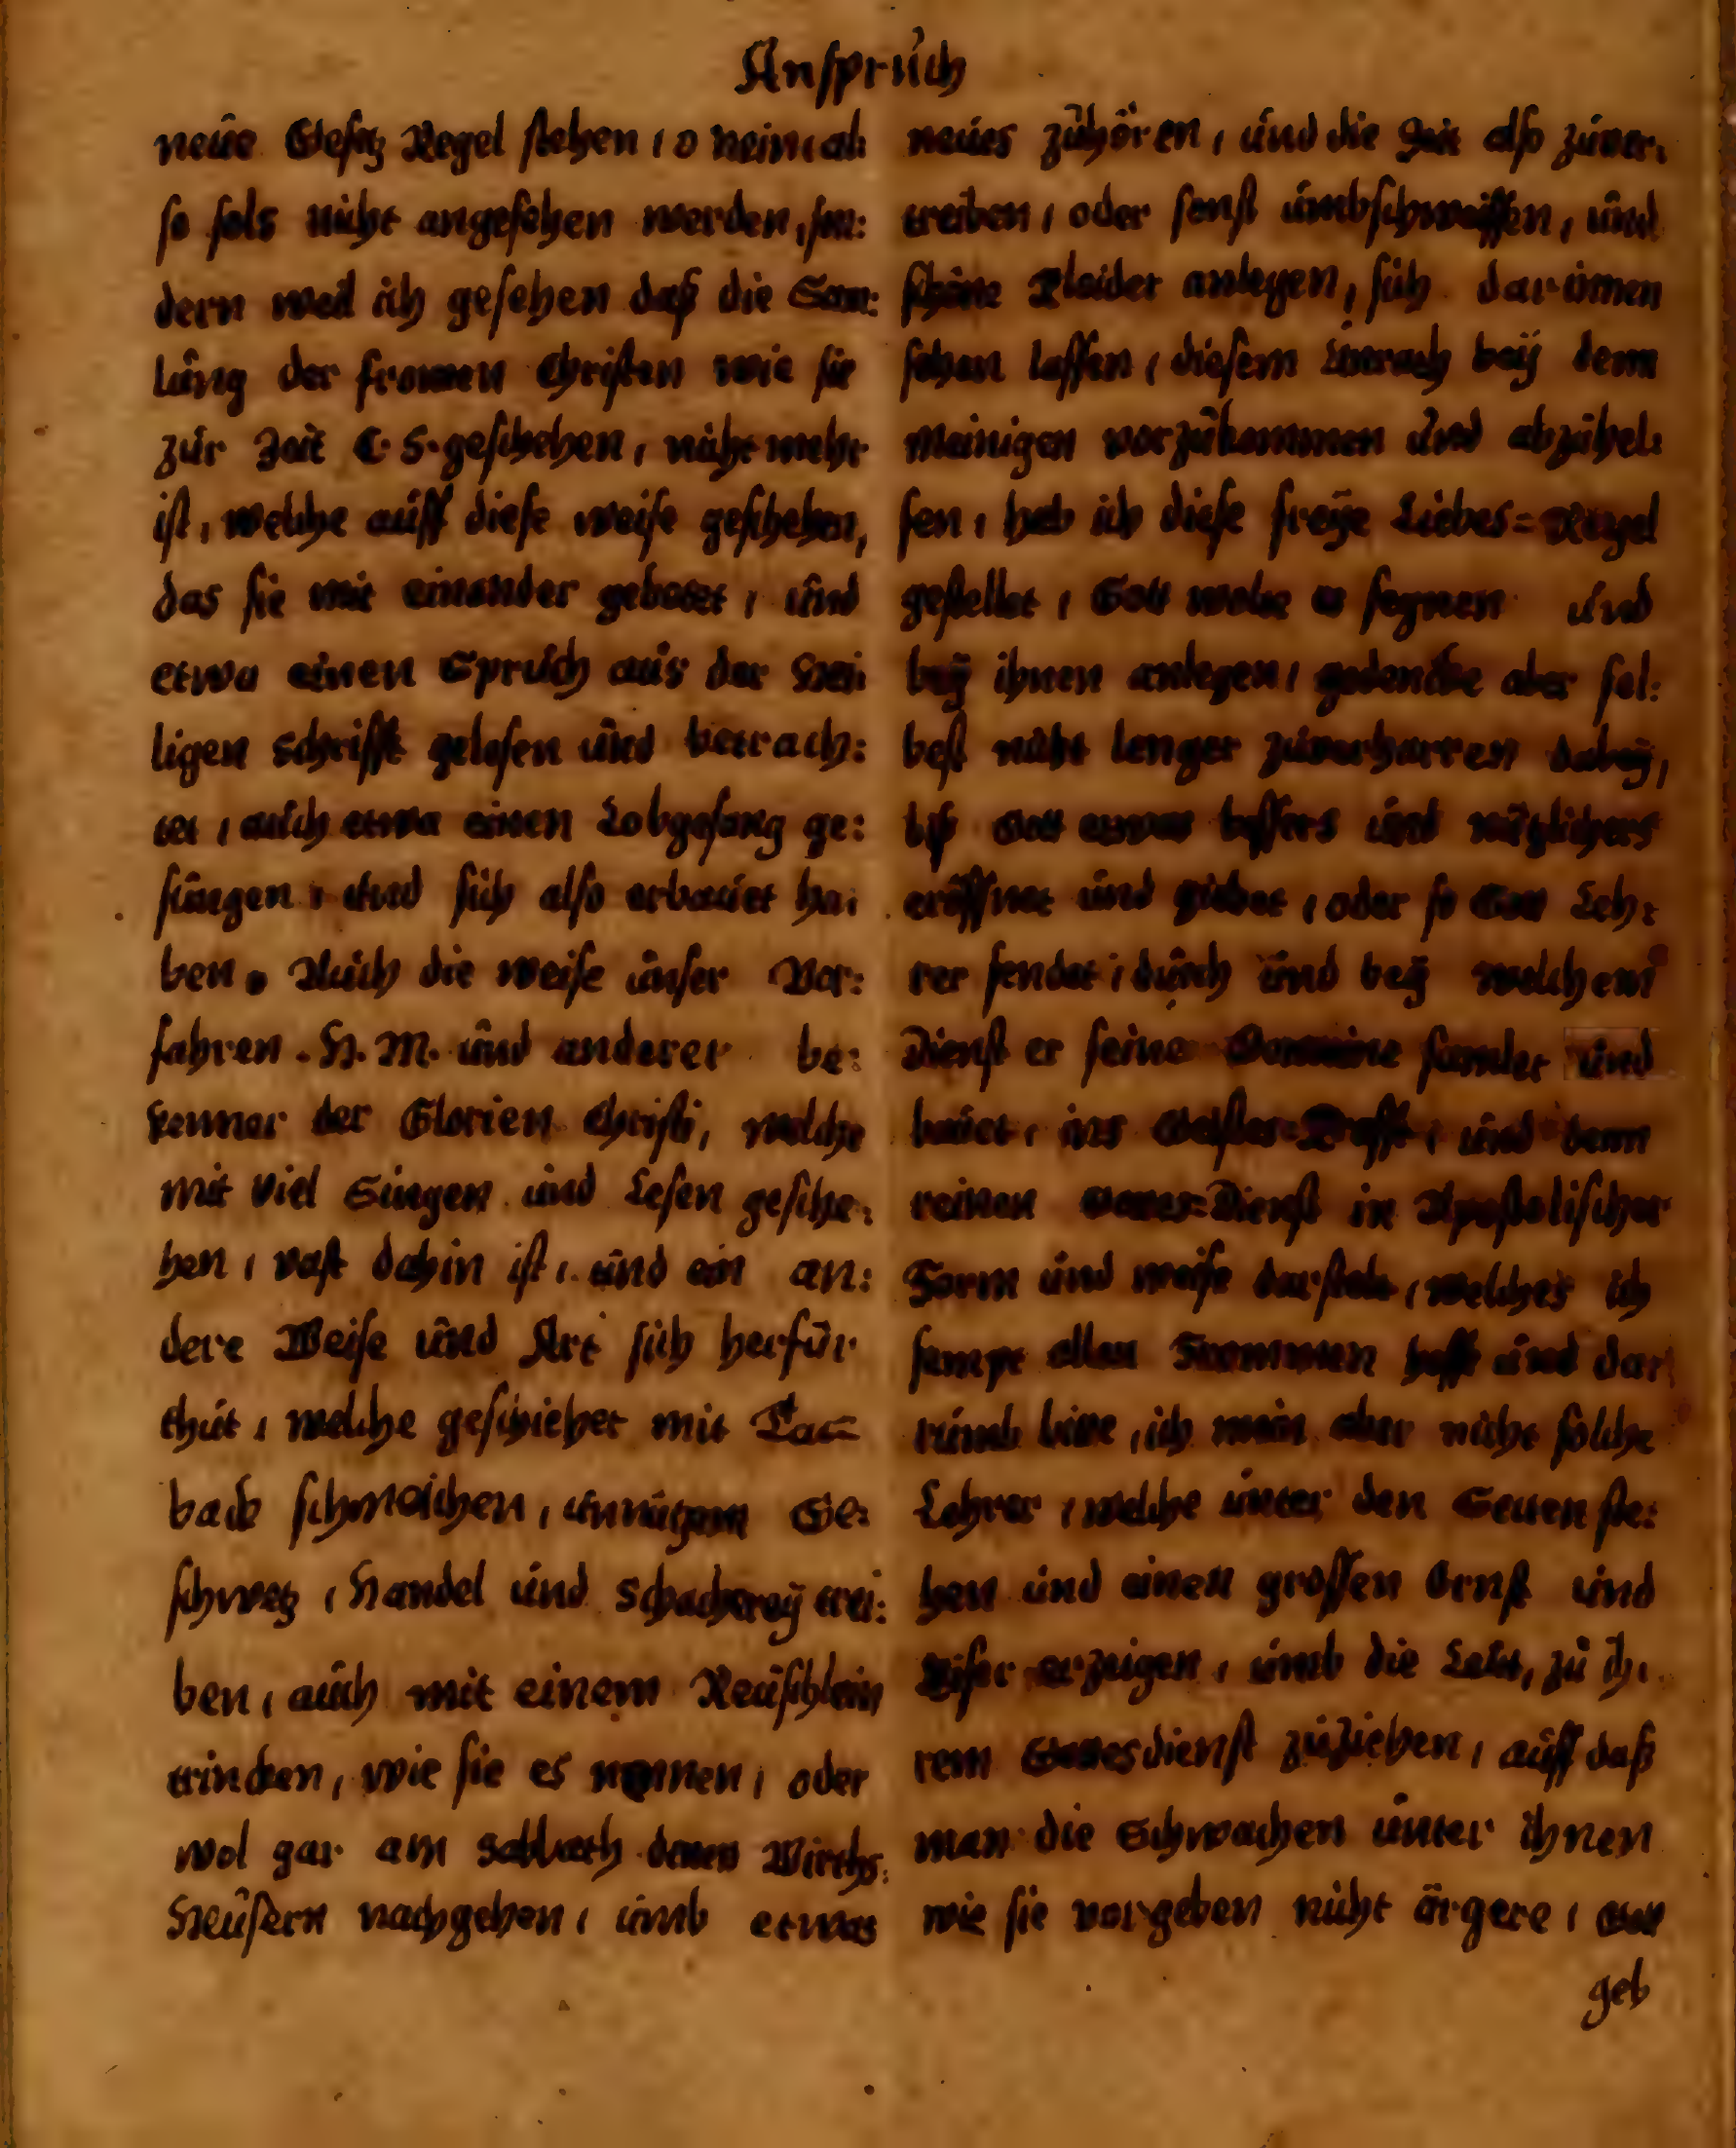 Anspruch
neue Gesetz Regel stehen, o nein, al:
so sols nicht angesehen werden, son:
dern weil ich gesehen daß die Sam:
lung der fromen Christen wie sie
zur Zeit C. S. geschehen, nicht mehr
ist, welche auff diese weise geschehen,
das sie mit einander gebetet, und
etwa einen Spruch aus der Hei:
ligen Schrifft gelesen und betrach:
tet, auch etwa einen Lobgesang ge:
sungen, und sich also erbauet ha:
ben. Auch die weise unser Vor:
fahren. H. M. und anderer be:
kenner der Glorien Christi, welche
mit viel Singen und Lesen gesche:
hen, vast dahin ist, und ein an:
dere Weise und Art sich herfür
thut, welche geschiehet mit Tac=
back schmoichen, unnützem Ge:
schwetz, Handel und Schacherey trei:
ben, auch mit einem Reuschlein
trincken, wie sie es nennen, oder
wol gar am Sabbath denen Wirths:
Heusern nachgehen, umb etwas
neues zuhören, und die Zeit also zuver:
treiben, oder sonst umbschweiffen, und
schöne Kleider anlegen, sich darinnen
sehen lassen, diesem Unrath bey dem
Meinigen vorzukommen und abzuhel:
fen, hab ich diese freye Liebes=Regel
gestellet, Gott wolle es segnen und
bey ihnen anlegen, gedencke aber sel:
best nicht lenger zuverharren dabey,
biß Gott etwas bessers und nützlichers
eröffnet und giebet, oder so Gott Leh:
rer sendet, durch und bey welchem
Dienst er seine Gemeine samlet und
bauet, ins Geistes=Krafft, und denn
reinen Gottes=Dienst in Apostolischer
Form und weise darstele, welches ich
sampt allen Frommen hoff und dar
rumb bitte, ich mein aber nicht solche
Lehrer, welche unter den Secten ste:
hen und einen grossen Ernst und
Eifer erzeigen, umb die Leut, zu ih:
rem Gottesdienst zuziehen, auff daß
man die Schwachen unter ihnen
wie sie vorgeben nicht ärgere, Gott
geb